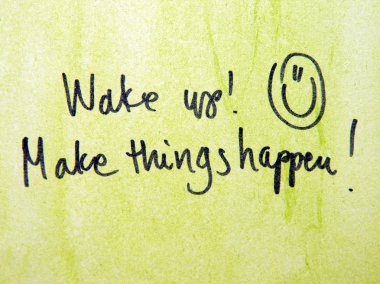 Wake up!
Make things happen!